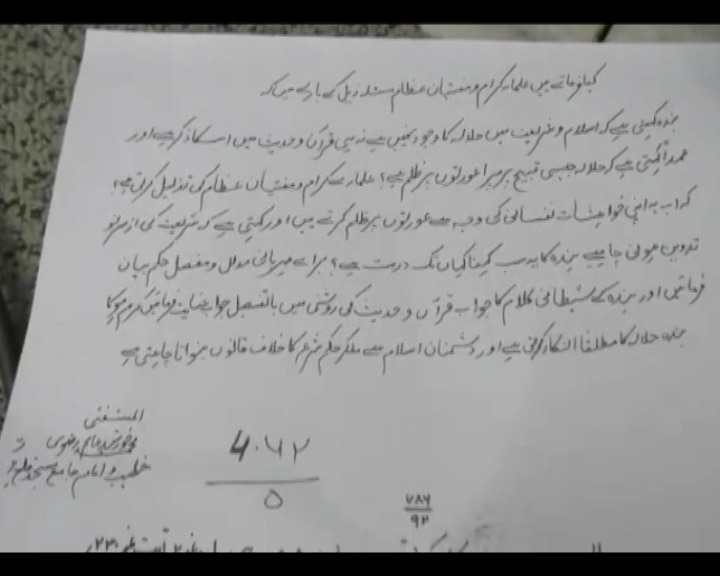 کیا فرماتے ہیں علماء کرام و مفتیان عظام مسئلہ ذیل کے بارے میں کہ
ہندہ کہتی ہے کہ اسلام و شریعت میں حلالہ کا وجود نہیں ہے نہ ہی قرآن و حدیث میں اسکا ذکر ہے اور
عمداً کہتی ہے کہ حلالہ جیسی قبیح عورتوں پر ظلم ہے؟ علمائے کرام و مفتیان عظام کی تذلیل کرتی ہے؟
کہ اب یہ اپنی خواہشات نفسانی کی وجہ سے عورتوں پر ظلم کرتے ہیں اور کہتی ہے کہ شریعت کی از سر نو
تدوین ہونی چاہیے ہندہ کا یہ سب کہنا کہاں تک درست ہے؟ برائے مہربانی مدلل و مفصل حکم بیان
فرمائیں اور ہندہ کے شیطانی کلام کا جواب قرآن و حدیث کی روشنی میں بالتفصیل جواب عنایت فرمائیں کرم ہوگا
ہندہ حلالہ کا مطلقاً انکار کرتی ہے اور دشمنان اسلام سے ملکر حکم شرع کا خلاف قانون بنوانا چاہتی ہے
المستفتی
رضوی
خطیب و امام جامع مسجد
۴۰۶۲
۵
۷۸۶
۹۲